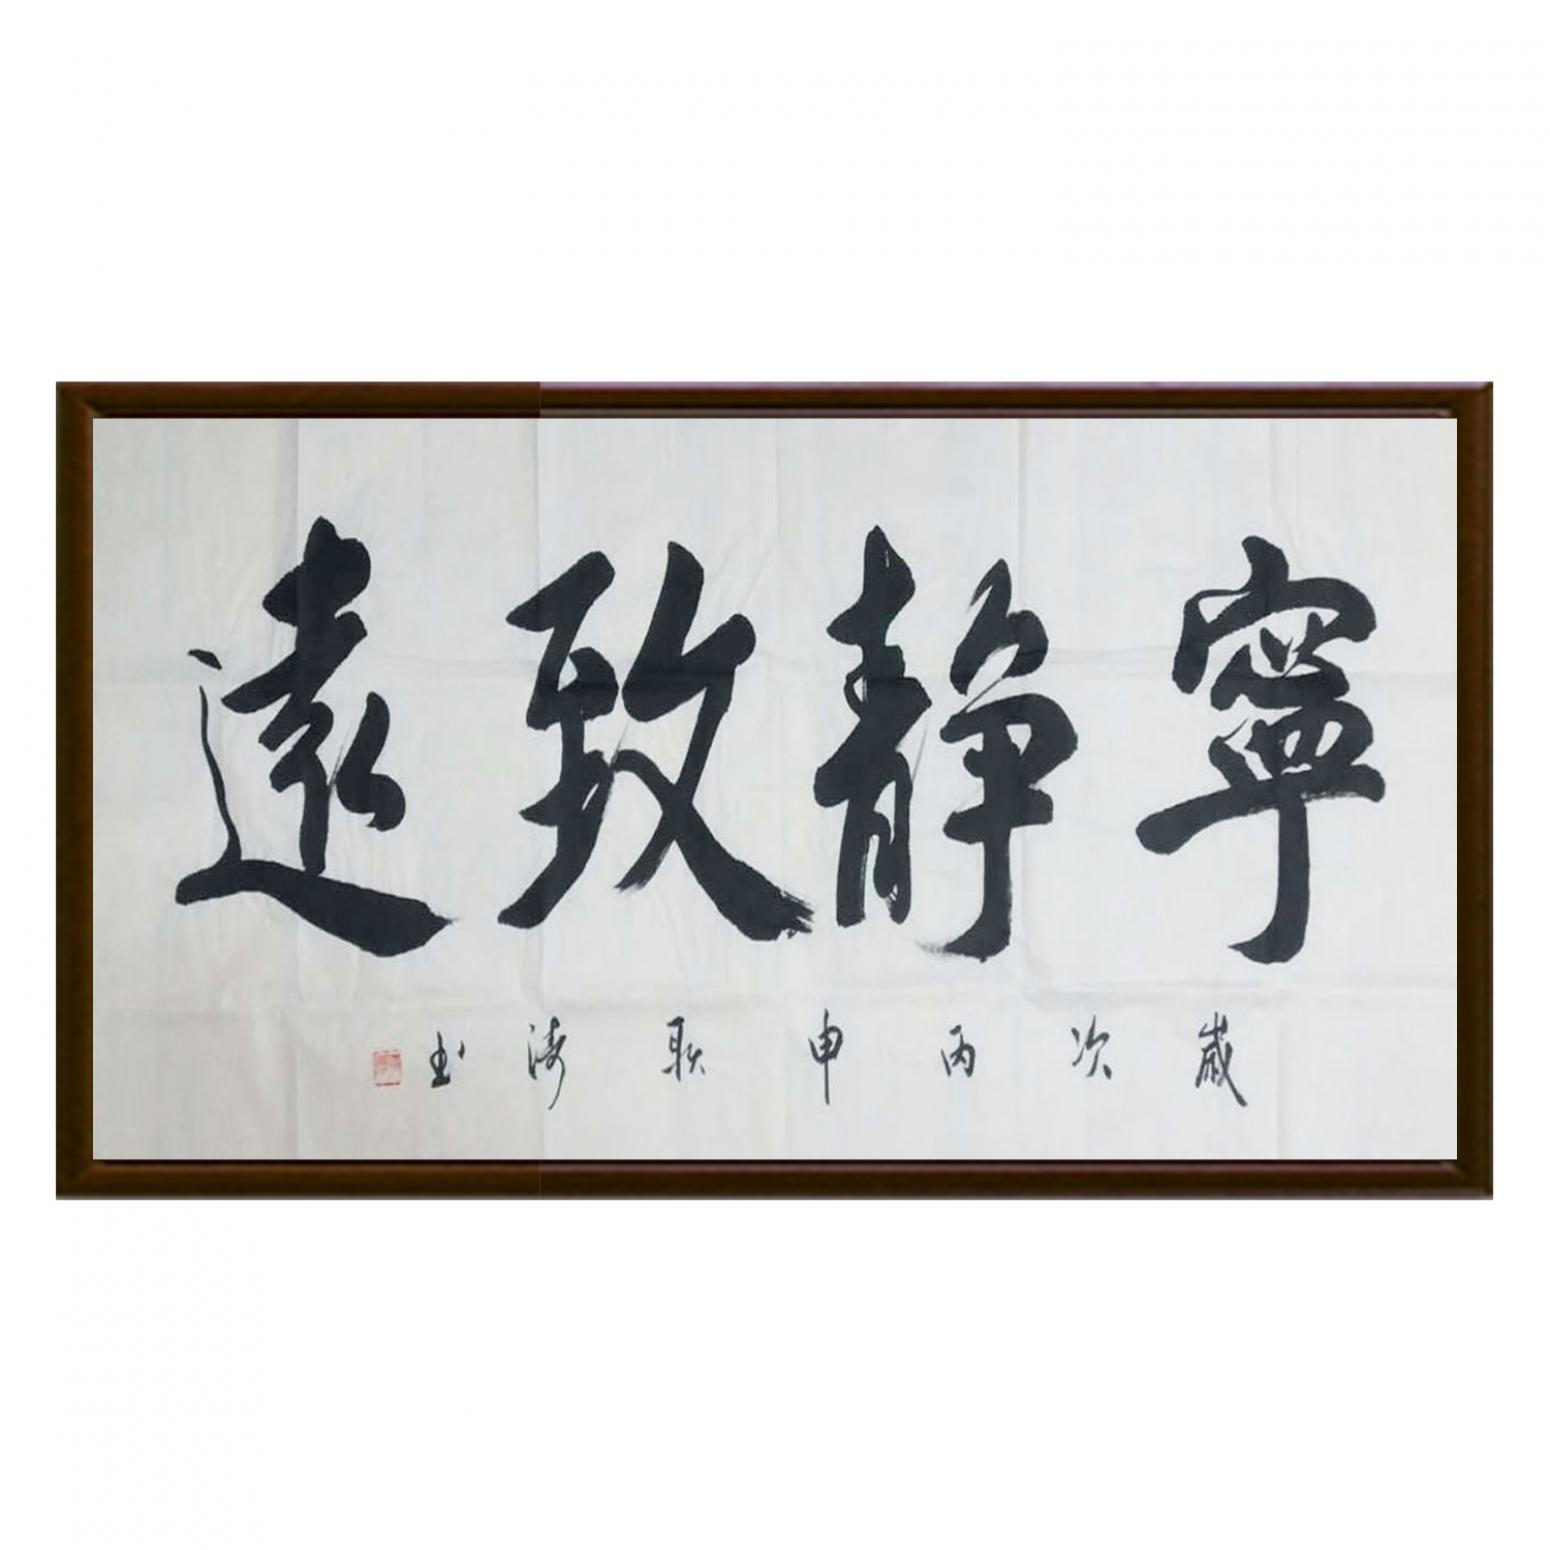 寧静致遠
歲次丙申耿濤书